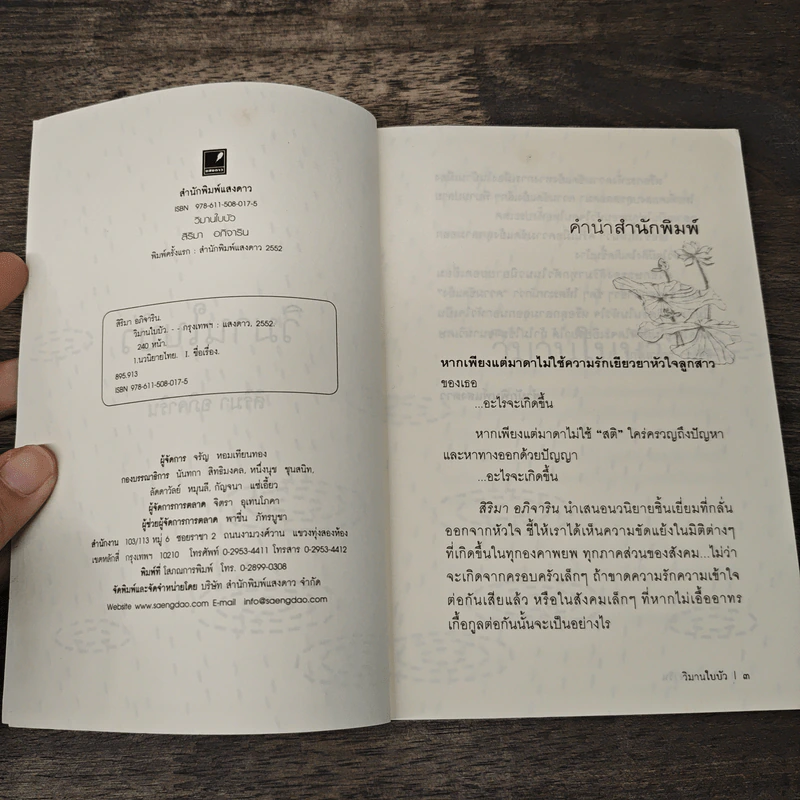 แสงดาว
สำนักพิมพ์แสงดาว
ISBN 978-611-508-017-5
วิมานใบบัว
สิริมา อภิจาริน
พิมพ์ครั้งแรก : สำนักพิมพ์แสงดาว 2552
สิริมา อภิจาริน.
วิมานใบบัว. - - กรุงเทพฯ : แสงดาว, 2552.
240 หน้า.
1.นวนิยายไทย. I. ชื่อเรื่อง.
895.913
ISBN 978-611-508-017-5
ผู้จัดการ จรัญ หอมเทียนทอง
กองบรรณาธิการ นันทกา สิทธิมงคล, หนึ่งนุช ชุนสนิท,
ลัดดาวัลย์ หมุนลี, กัญจนา แซ่เอี้ยว
ผู้จัดการการตลาด จิตรา อุเทนโภคา
ผู้ช่วยผู้จัดการการตลาด พาชื่น ภัทรบูชา
สำนักงาน 103/113 หมู่ 6 ซอยราชา 2 ถนนงามวงศ์วาน แขวงทุ่งสองห้อง
เขตหลักสี่ กรุงเทพฯ 10210 โทรศัพท์ 0-2953-4411 โทรสาร 0-2953-4412
พิมพ์ที่ โสภณการพิมพ์ โทร. 0-2899-0308
จัดพิมพ์และจัดจำหน่ายโดย บริษัท สำนักพิมพ์แสงดาว จำกัด
Website www.saengdao.com E-mail info@saengdao.com
คำนำสำนักพิมพ์
หากเพียงแต่มาดาไม่ใช้ความรักเยียวยาหัวใจลูกสาว
ของเธอ
...อะไรจะเกิดขึ้น
หากเพียงแต่มาดาไม่ใช้ “สติ” ใคร่ครวญถึงปัญหา
และหาทางออกด้วยปัญญา
...อะไรจะเกิดขึ้น
สิริมา อภิจาริน นำเสนอนวนิยายชิ้นเยี่ยมที่กลั่น
ออกจากหัวใจ ชี้ให้เราได้เห็นความขัดแย้งในมิติต่างๆ
ที่เกิดขึ้นในทุกองคาพยพ ทุกภาคส่วนของสังคม...ไม่ว่า
จะเกิดจากครอบครัวเล็กๆ ถ้าขาดความรักความเข้าใจ
ต่อกันเสียแล้ว หรือในสังคมเล็กๆ ที่หากไม่เอื้ออาทร
เกื้อกูลต่อกันนั้นจะเป็นอย่างไร
วิมานใบบัว | ๓